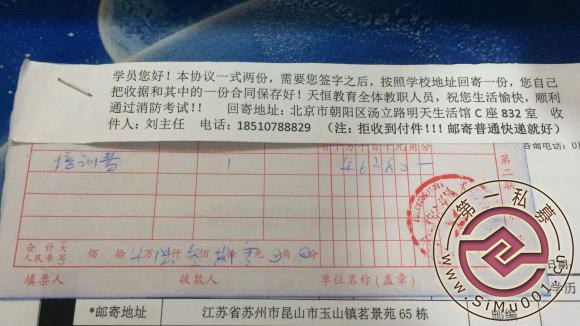 学员您好！本协议一式两份，需要您签字之后，按照学校地址回寄一份，您自己
把收据和其中的一份合同保存好！天恒教育全体教职人员，祝您生活愉快，顺利
通过消防考试！！ 回寄地址：北京市朝阳区汤立路明天生活馆 C 座 832 室 收
件人：刘主任 电话：18510788829 （注：拒收到付件！！！邮寄普通快递就好）
咨询电话：0
培训费 1
第二联
合计 大写
人民币 佰 拾 万 仟 佰 拾 元 角 分
填票人 收款人 单位名称（盖章）
日期
学历
*邮寄地址 江苏省苏州市昆山市玉山镇茗景苑 65 栋 邮编
第一私募
www.SiMu001.cn